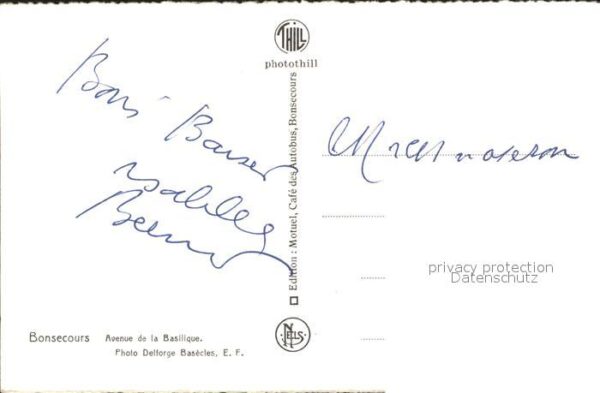 THILL
photothill
Bons Baisers
Edition : Motuel, Café des Autobus, Bonsecours
privacy protection
Datenschutz
NELS
Bonsecours Avenue de la Basilique.
Photo Delforge Basècles, E. F.